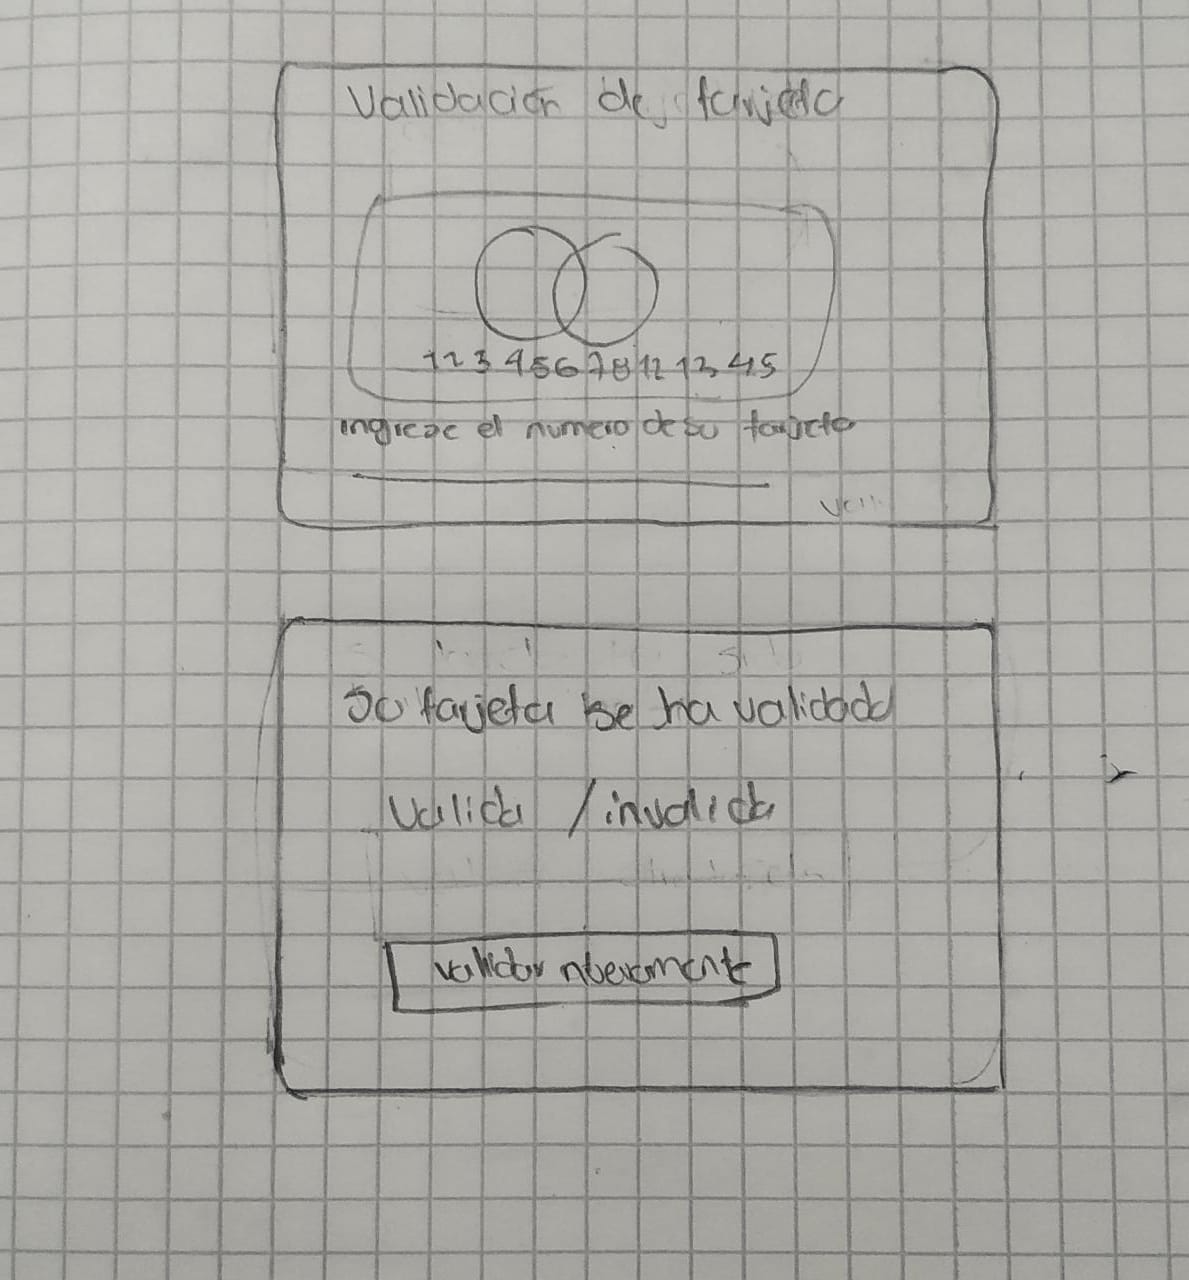 Validación de tarjeta
123 456 78 12 13 45
ingrese el numero de su tarjeta
Vali
Su tarjeta se ha validado
Valida / invalida
validar nuevamente